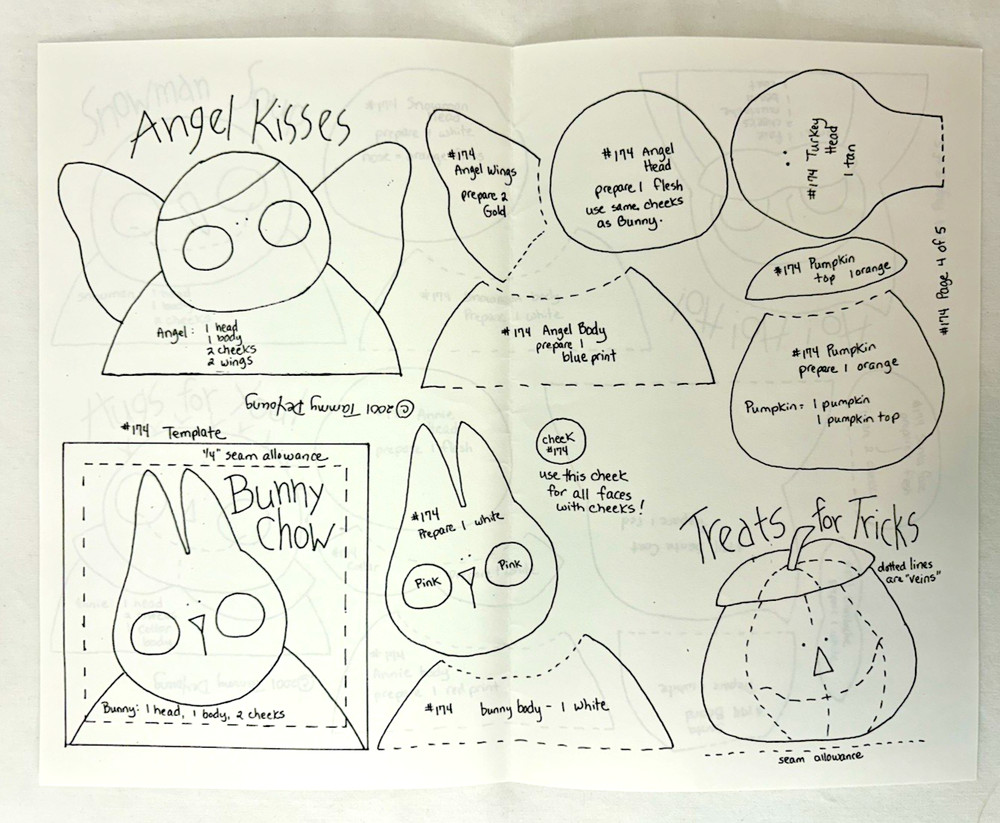 Angel Kisses
Angel: 1 head
1 body
2 cheeks
2 wings
#174
Angel Wings
prepare 2
Gold
#174 Angel
Head
prepare 1 flesh
use same cheeks
as Bunny.
#174 Turkey
Head
1 tan
#174 Pumpkin
top 1 orange
#174 Page 4 of 5
#174 Angel Body
prepare 1
blue print
#174 Pumpkin
prepare 1 orange
Pumpkin = 1 pumpkin
1 pumpkin top
©2001 Tammy DeYoung
#174 Template
1/4" seam allowance
Bunny
Chow
Bunny: 1 head, 1 body, 2 cheeks
#174
Prepare 1 white
Pink
Pink
cheek
#174
use this cheek
for all faces
with cheeks!
#174 bunny body - 1 white
Treats for Tricks
dotted lines
are "veins"
seam allowance
Snowman
#174 Snowman
Head
prepare 1 white
Hugs for You